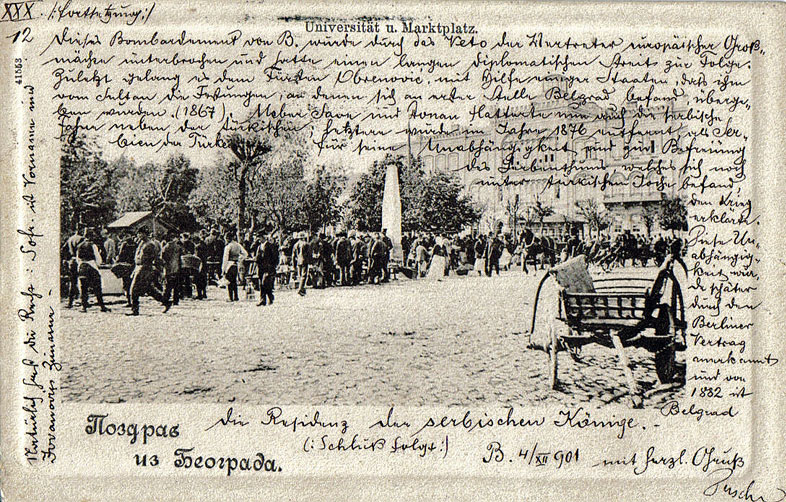 XXX /:Fortsetzung:/
Universität u. Marktplatz.
12
41553
Dieses Bombardement von B. wurde durch das Veto der Vertreter europäischer Groß-
mächte unterbrochen und hatte einen langen diplomatischen Streit zur Folge.
Zuletzt gelang es dem Fürsten Obrenović, mit Hilfe einiger Staaten, dass ihm
vom Sultan die Festungen, an denen sich an erster Stelle Belgrad befand, überge-
ben wurden. (1867). Ueber Save und Donau flatterte nun auch die serbische
Fahne neben der türkischen; letztere wurde im Jahre 1876 entfernt, als Ser-
bien der Türkei
für seine Unabhängigkeit und zur Befreiung
des Serbenthums welches sich noch
unter türkischem Joche befand,
den Krieg
erklärte.
Diese Un-
abhängig-
keit wur-
de später
durch den
Berliner
Vertrag
anerkannt
und von
1882 ist
Belgrad
die Residenz der serbischen Könige. –
(: Schluß folgt :)
Поздрав
из Београда.
B. 4/XII 901
mit herzl. Gruß
Natürlich hast du Recht: Sofi ist Vorname und
Jovanović Zuname –